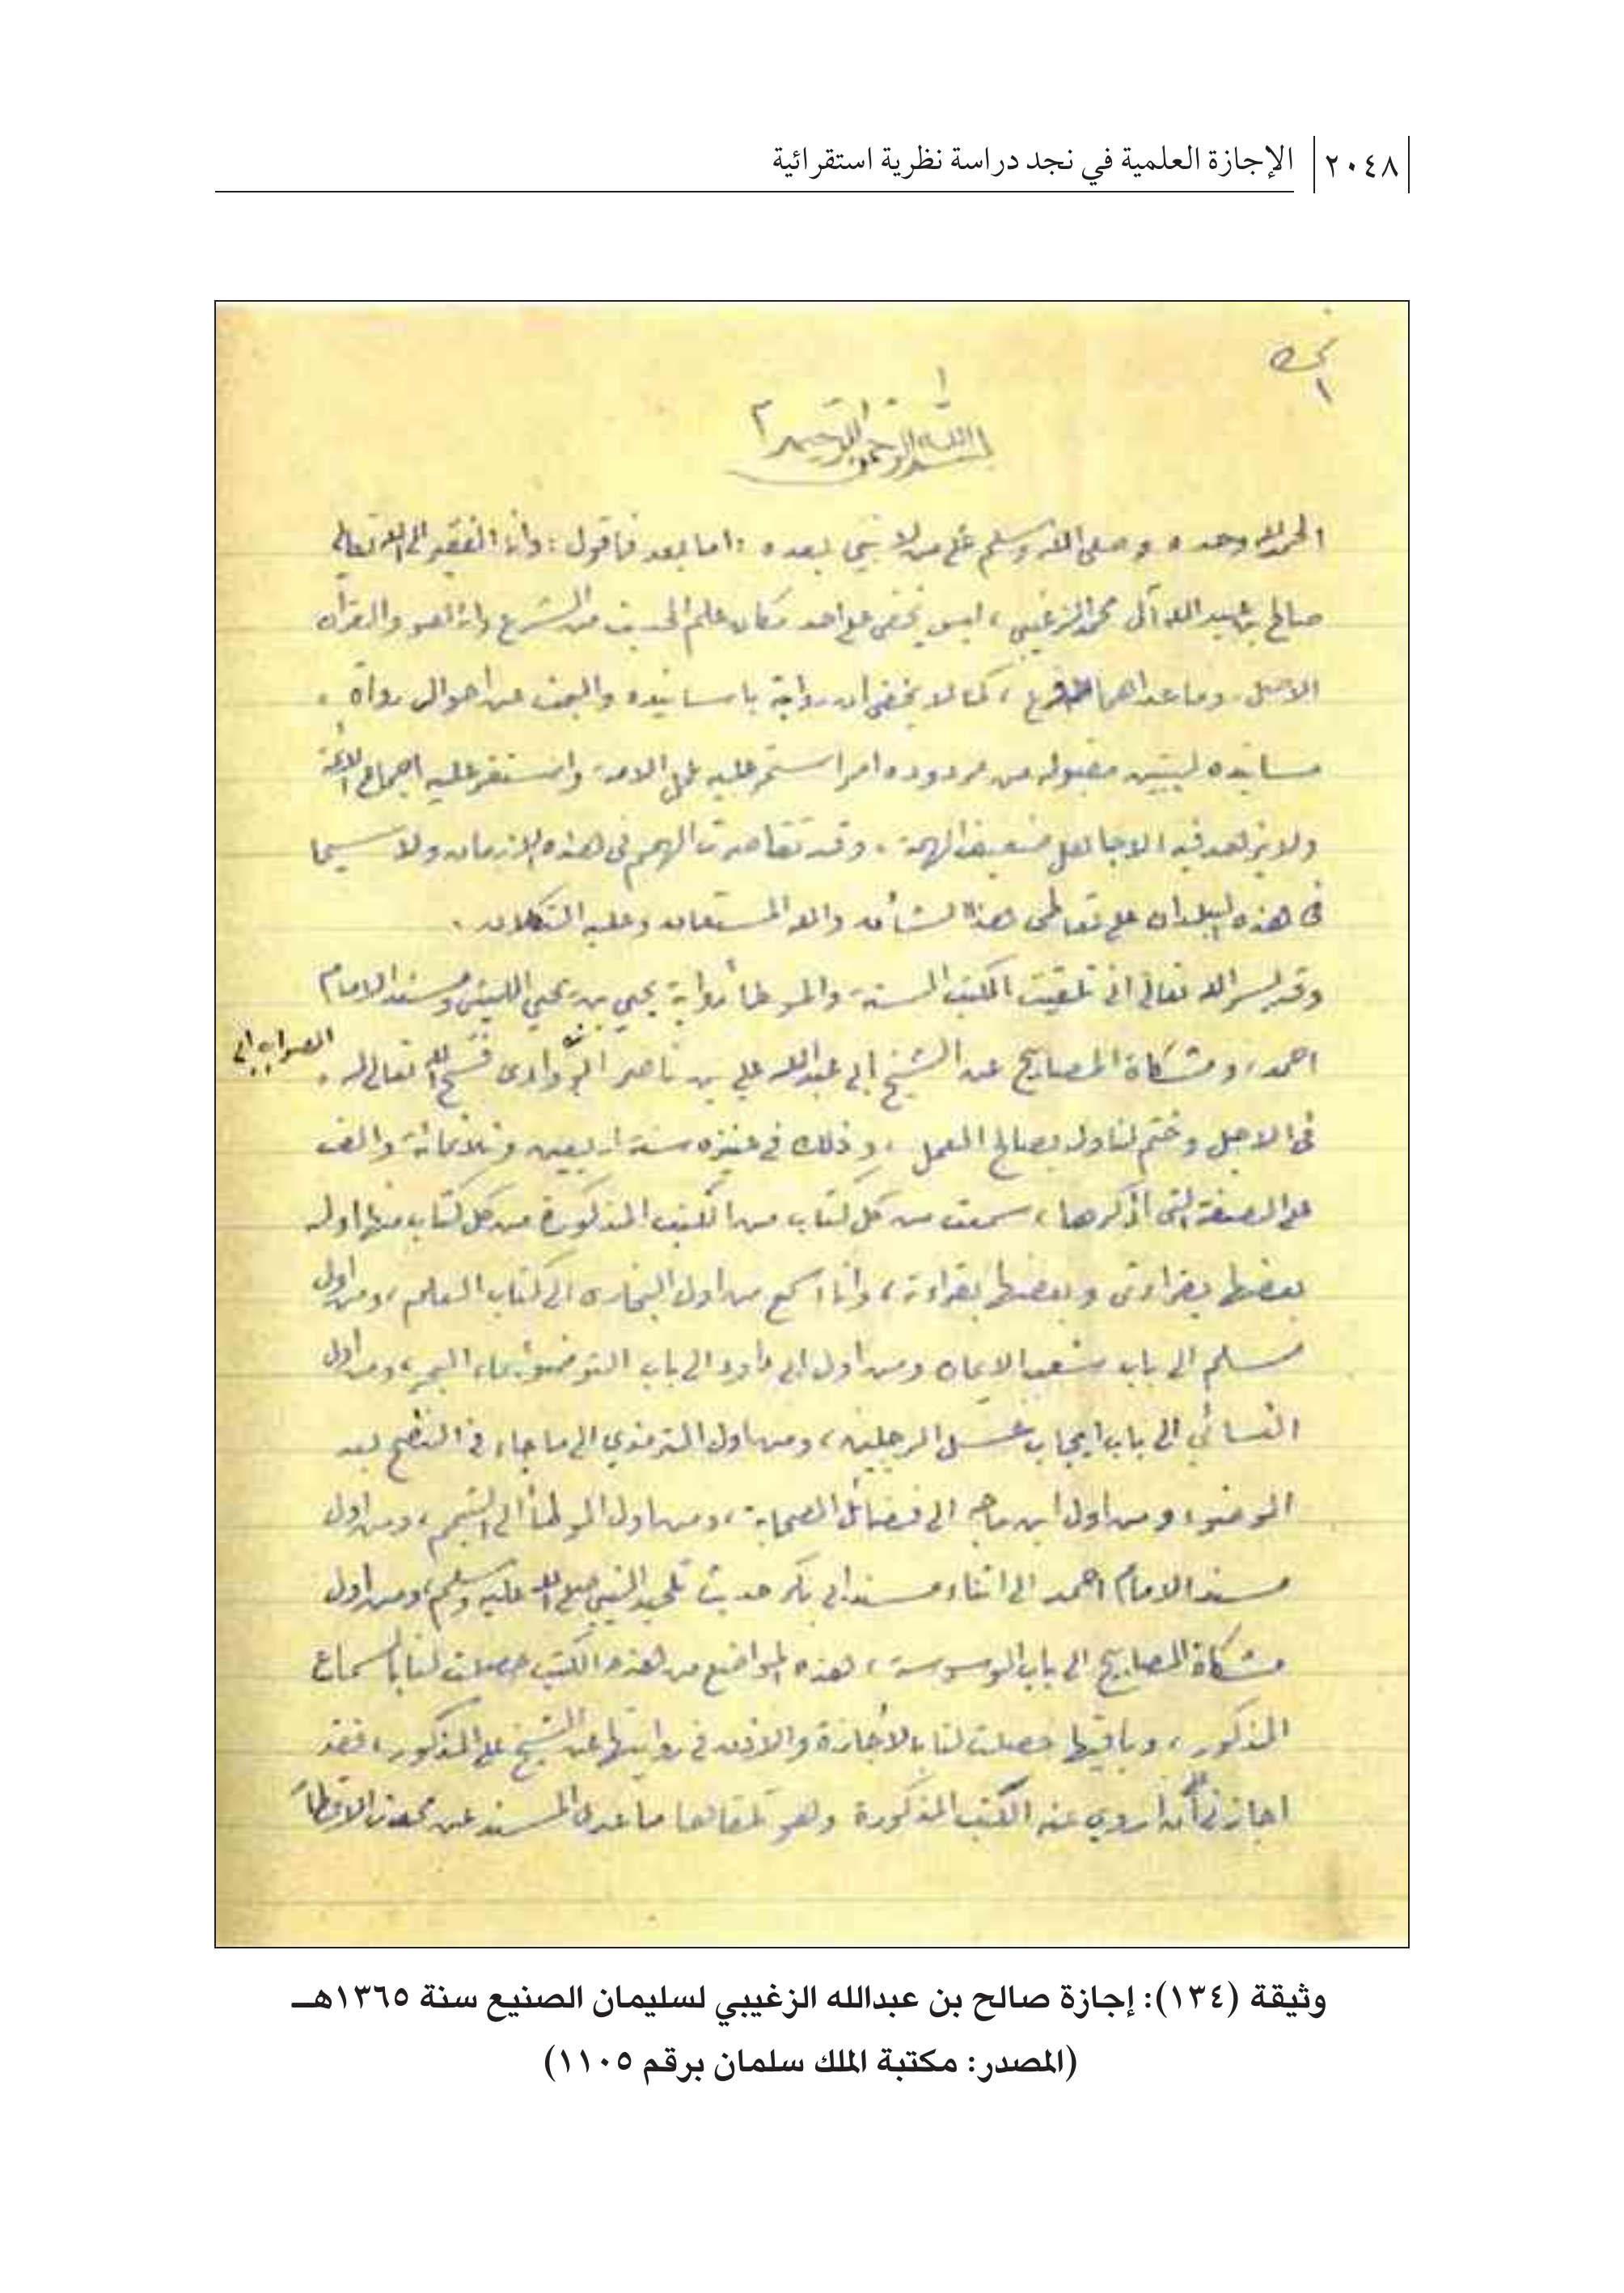 ٢٠٤٨
الإجازة العلمية في نجد دراسة نظرية استقرائية
١
بسم الله الرحمن الرحيم
الحمد لله وحده وصلى الله وسلم على من لا نبي بعده : اما بعد فاقول : وانا الفقير الى الله تعالى
صالح بن عبد الله آل محمد الزغيبي ، ليس يخفى على احد مكان علم الحديث من الشرع وانه هو والقرآن
الاصل . وما عداهما ، كما لا يخفى ان روايته باسانيده والبحث عن احوال رواة
مسانيده ليتبين مقبوله من مردوده امرا ستمر عليه عمل الامة واستقر عليه اجماع الائمة
ولا يزهد فيه الا جاهل ضعيف الهمة . وقد تقاصرت الهمم في هذه الازمان ولا سيما
في هذه البلدان على تعاطى هذا الشأن والله المستعان وعليه التكلان .
وقد يسر الله تعالى انى تلقيت الكتب الستة والموطأ رواية يحيى بن يحيى الليثي ومسند الامام
احمد ، ومشكاة المصابيح عن الشيخ ابي عبدالله علي بن ناصر ابو وادى فسح الله تعالى له
الصواب ابي
في الاجل وختم لنا وله بصالح العمل ، وذلك في عنيزه سنة اربعين وثلاثمائة والف
على الصفة التى اذكرها ، سمعت من كل كتاب من الكتب المذكورة من كل كتاب منها اوله
بعضها بقراءتى وبعضها بقراءة ، وانا اسمع من اول البخارى الى كتاب العلم ، ومن اول
مسلم الى باب شعب الايمان ومن اول ابى داود الى باب التوضوء بماء البحر ، ومن اول
النسائي الى باب ايجاب غسل الرجلين ، ومن اول الترمذي الى ما جاء في النضح بعد
الوضوء ومن اول ابن ماجه الى فضائل الصحابة ، ومن اول الموطأ الى التيمم ، ومن اول
مسند الامام احمد الى اثناء مسند ابى بكر حديث تلحيد النبي صلى الله عليه وسلم ، ومن اول
مشكاة المصابيح الى باب الوسوسة ، هذه المواضع من هذه الكتب حصلت لنا بالسماع
المذكور ، وباقيها حصلت لنا بالاجازة والاذن في روايتها عن الشيخ علي المذكور ، فقد
اجازنى أن اروي عنه الكتب المذكورة وهو تلقاها ما عدى المسند عن محدث الاقطار
وثيقة (١٣٤): إجازة صالح بن عبدالله الزغيبي لسليمان الصنيع سنة ١٣٦٥هـ
(المصدر: مكتبة الملك سلمان برقم ١١٠٥)